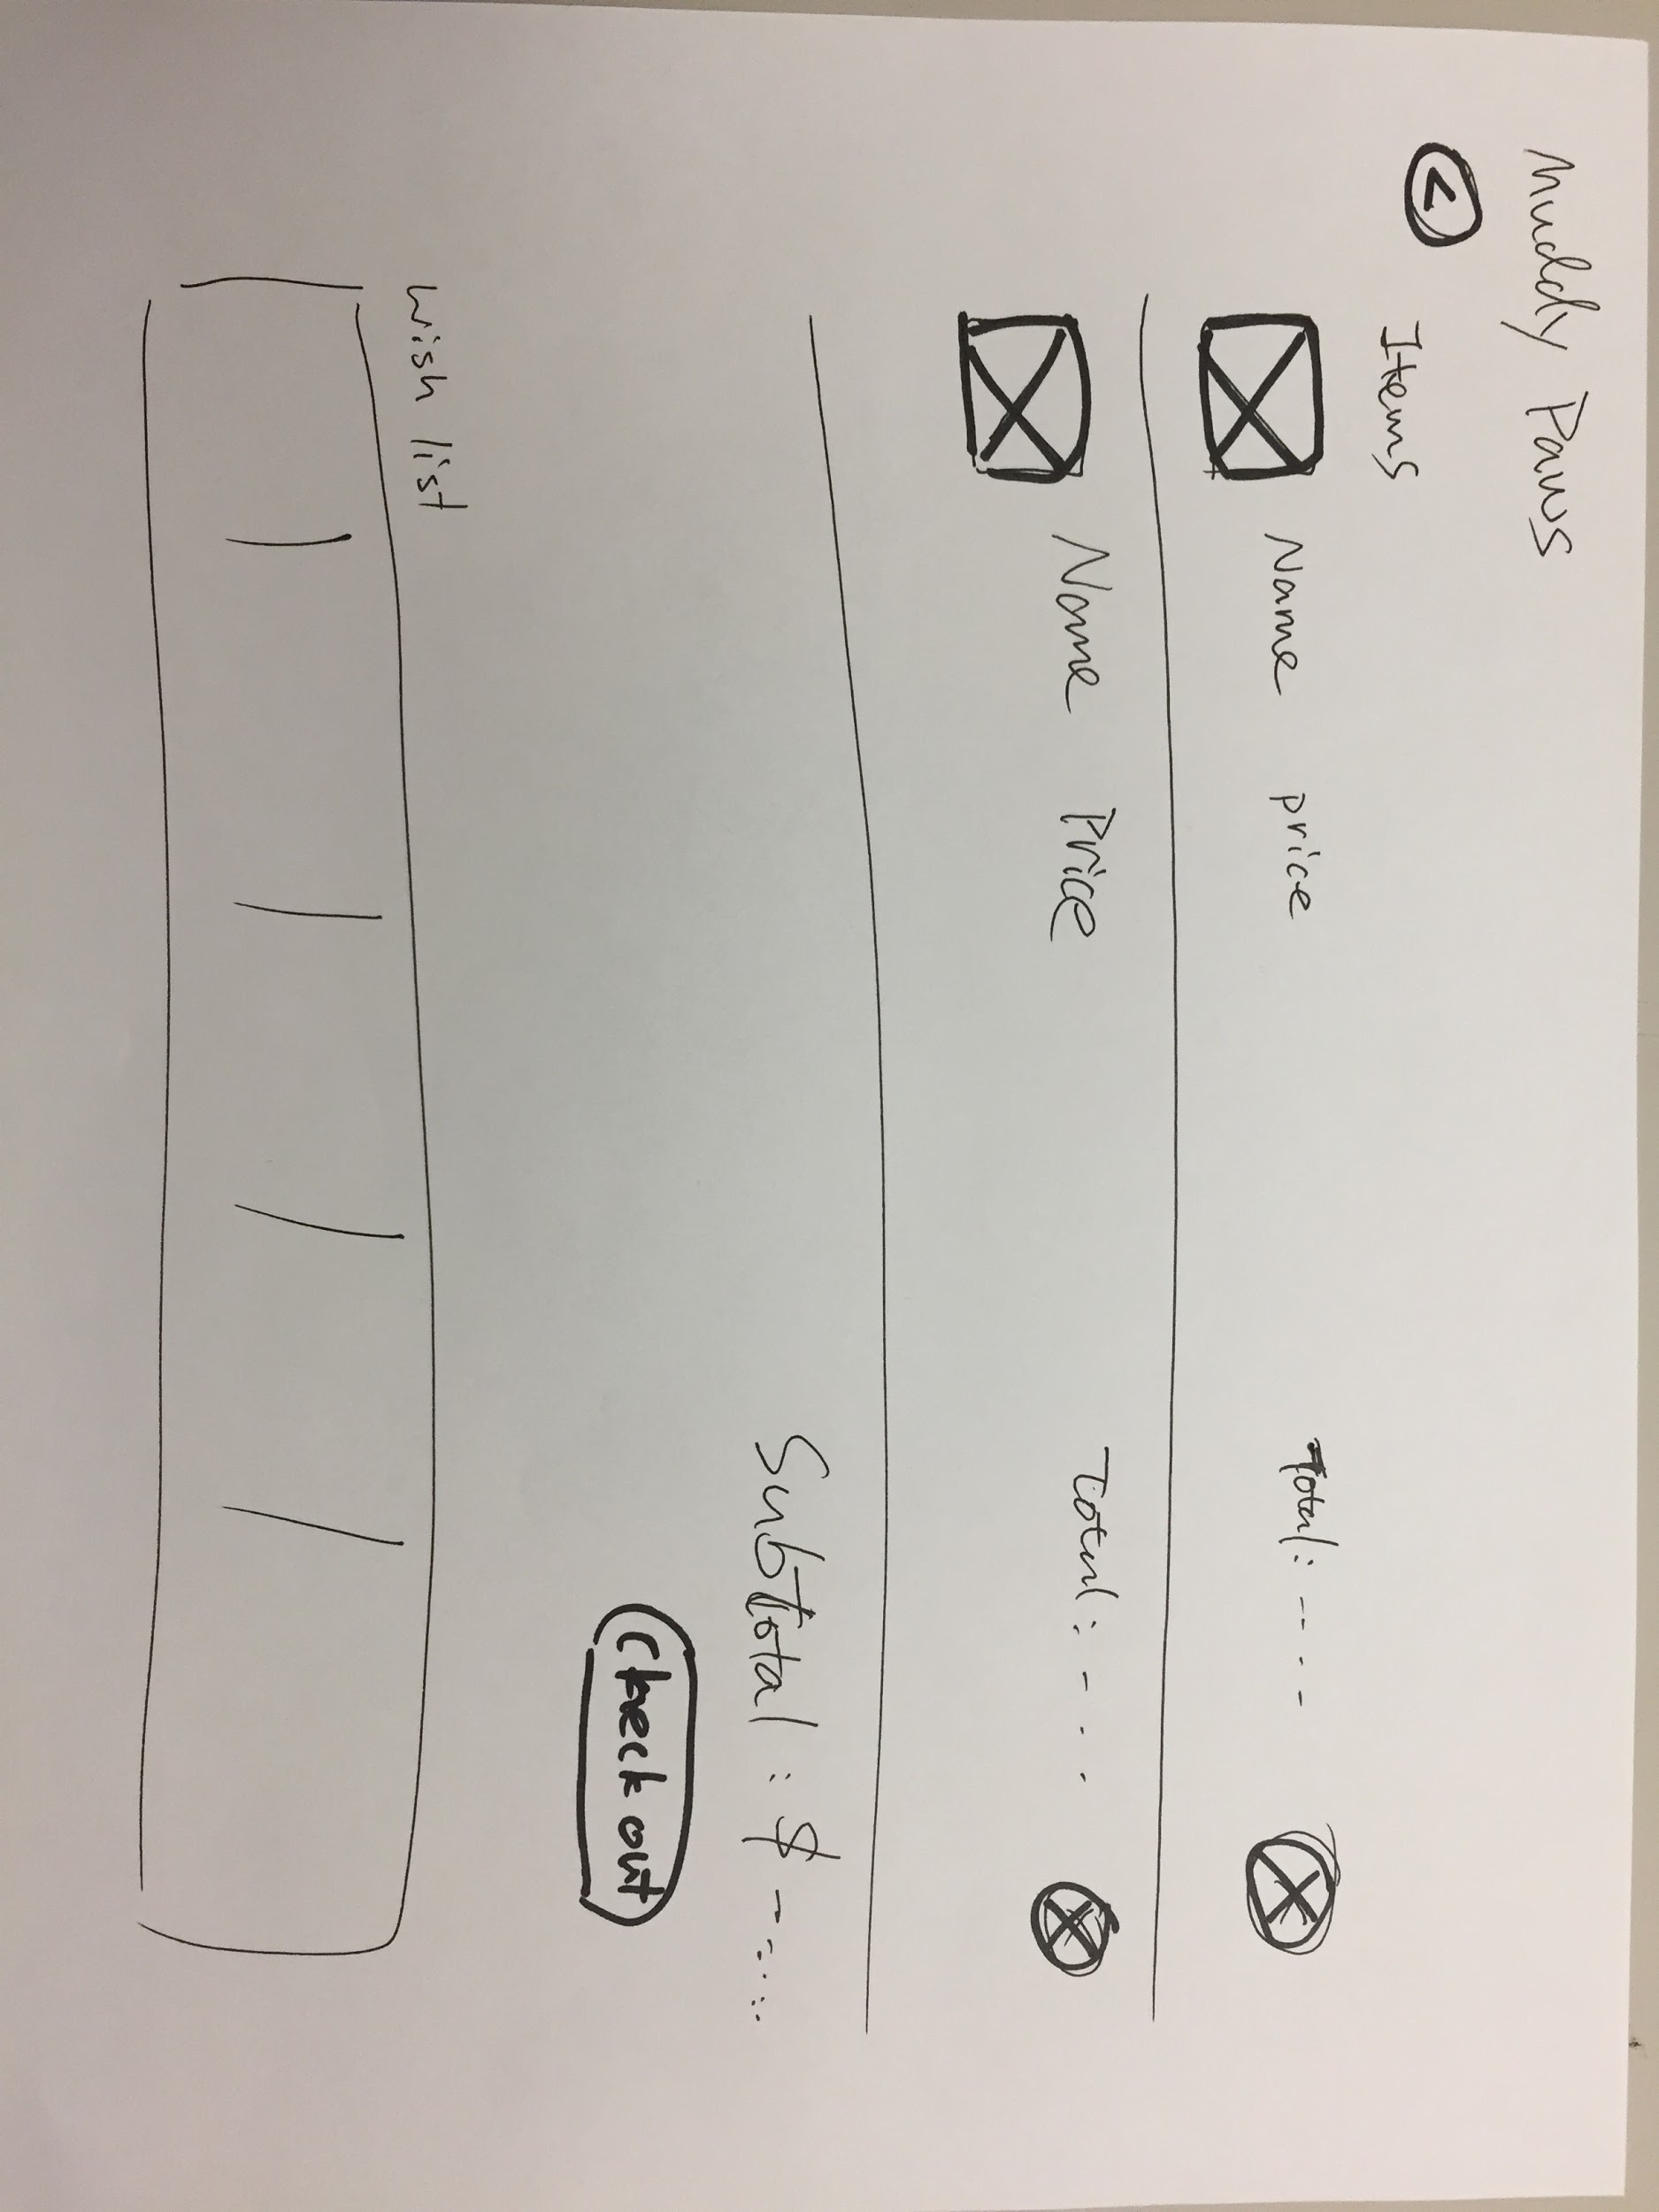 Muddy Paws
<
Items
Name price Total: ----
Name Price Total: ----
Subtotal: $ -----
Check out
wish list